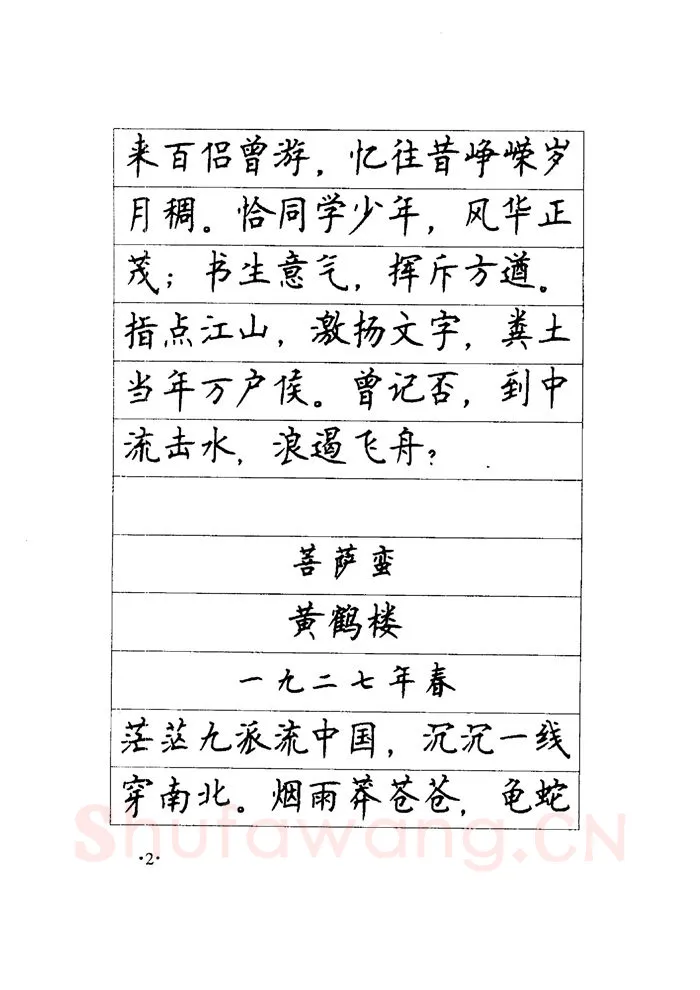 来百侣曾游，忆往昔峥嵘岁
月稠。恰同学少年，风华正
茂；书生意气，挥斥方遒。
指点江山，激扬文字，粪土
当年万户侯。曾记否，到中
流击水，浪遏飞舟？
菩萨蛮
黄鹤楼
一九二七年春
茫茫九派流中国，沉沉一线
穿南北。烟雨莽苍苍，龟蛇
Shufawang.CN
·2·